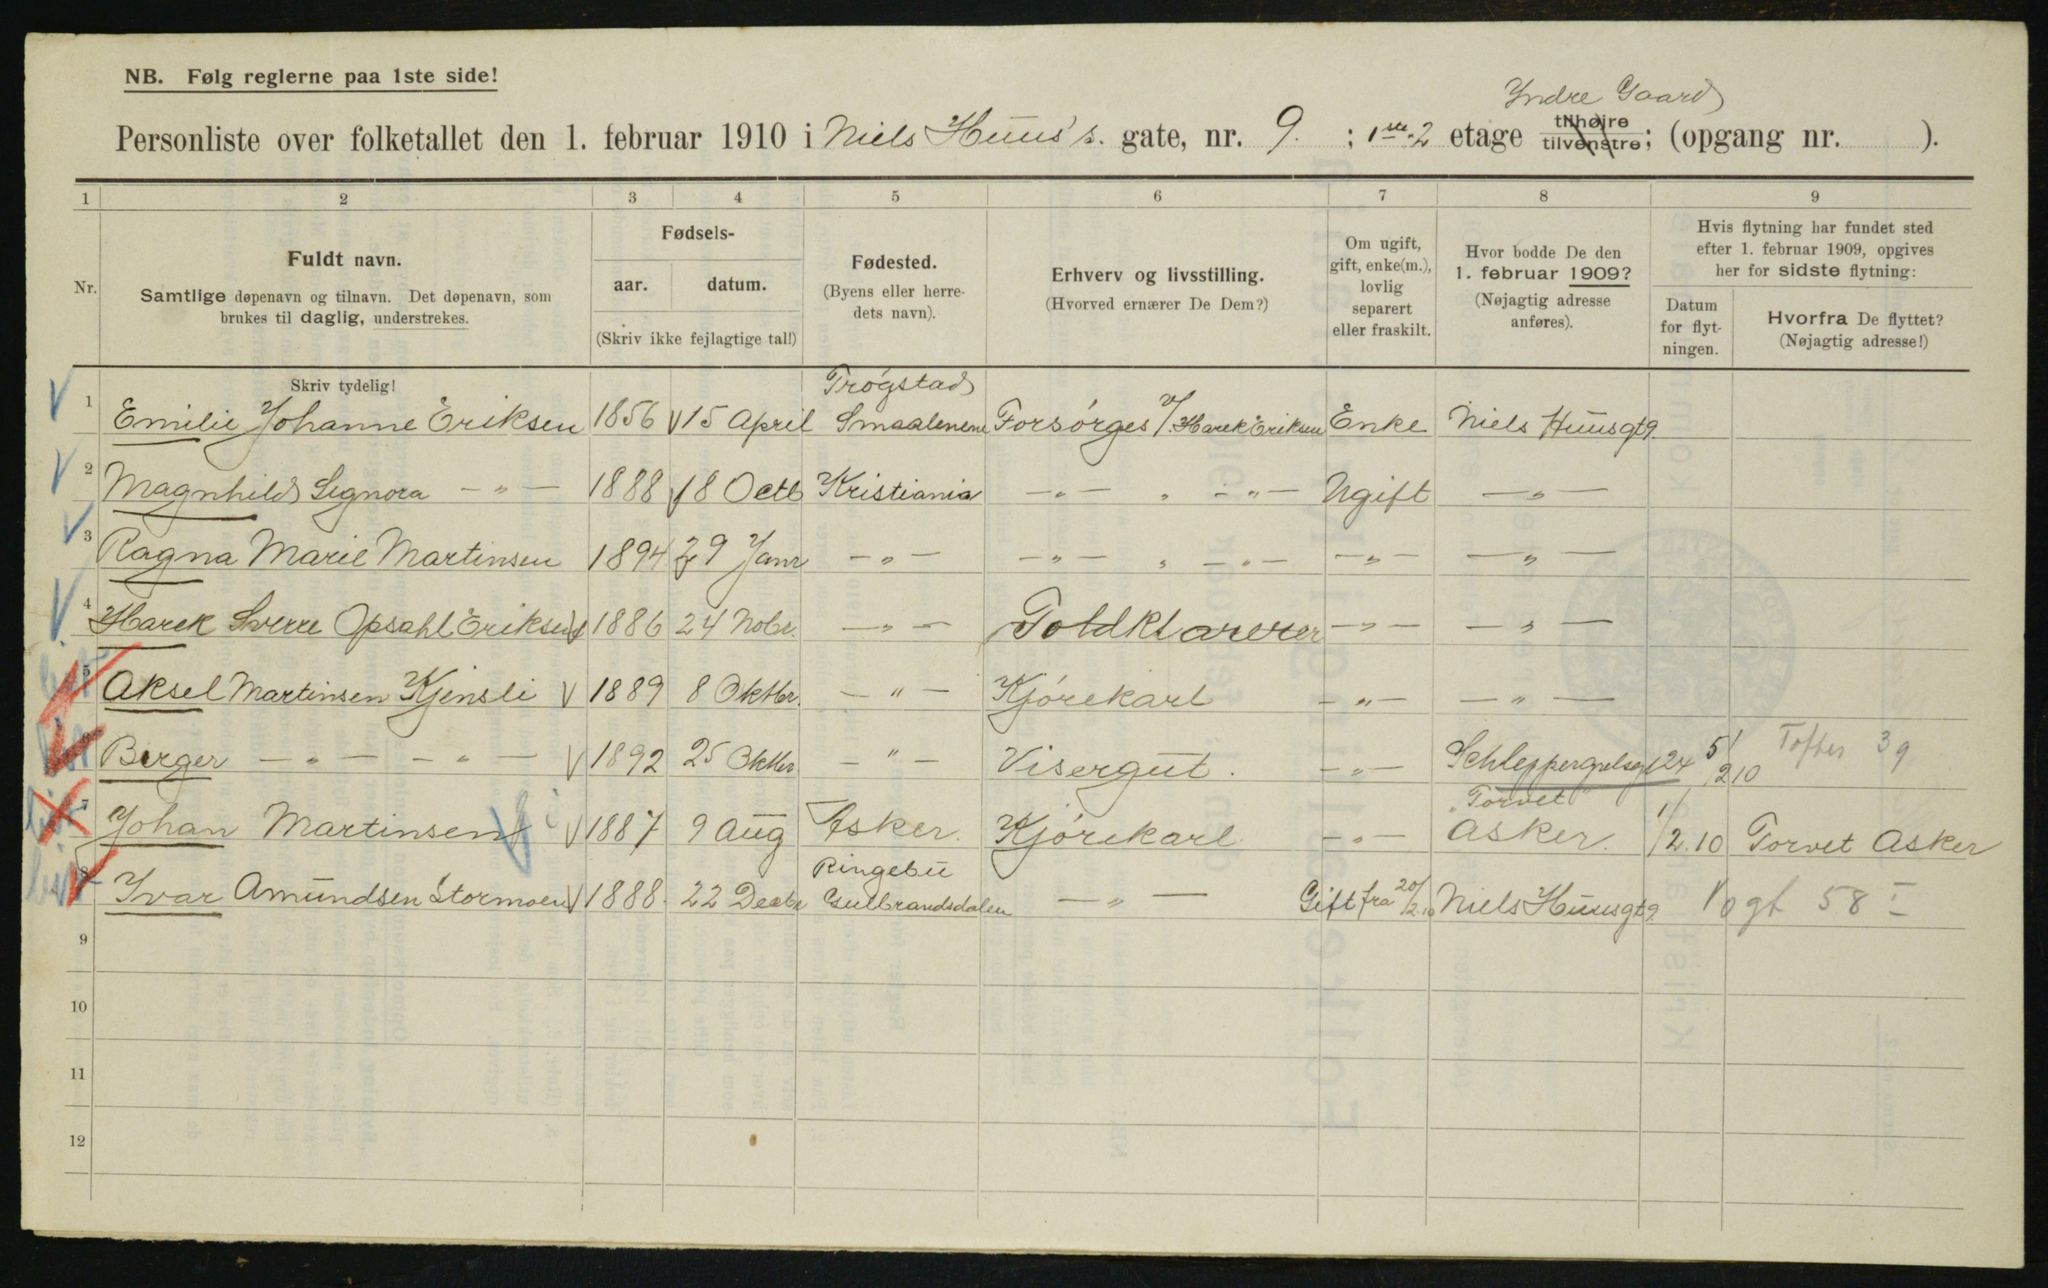 NB. Følg reglerne paa 1ste side!
Yndre Gaard
Personliste over folketallet den 1. februar 1910 i Niels Huus's. gate, nr. 9. ; 1ste 2 etage tilhøjre tilvenstre; (opgang nr. ).
1 2 3 4 5 6 7 8 9
Nr.
Fuldt navn.
Samtlige døpenavn og tilnavn. Det døpenavn, som
brukes til daglig, understrekes.
Skriv tydelig!
Fødsels-
aar. datum.
(Skriv ikke fejlagtige tal!)
Fødested.
(Byens eller herre-
dets navn).
Erhverv og livsstilling.
(Hvorved ernærer De Dem?)
Om ugift,
gift, enke(m.),
lovlig
separert
eller fraskilt.
Hvor bodde De den
1. februar 1909?
(Nøjagtig adresse
anføres).
Hvis flytning har fundet sted
efter 1. februar 1909, opgives
her for sidste flytning:
Datum
for flyt-
ningen.
Hvorfra De flyttet?
(Nøjagtig adresse!)
Trøgstad
1 Emilie Johanne Eriksen 1856 15 April Smaalenene Forsørges v/. Harek Eriksen Enke Niels Huusgt 9.
2 Magnhild Signora — " — 1888 18 Octb Kristiania — " — " — " — Ugift — " —
3 Ragna Marie Martinsen 1894 29 Janr — " — — " — " — " — — " — — " —
4 Harek Sverre Opsahl Eriksen 1886 24 Nobr. — " — Toldklarerer — " — — " —
5 Aksel Martinsen Kjensli 1889 8 Oktbr. — " — Kjørekarl — " — — " —
6 Berger — " — — " — 1892 25 Oktbr — " — Visergut. — " — Schleppergrelsegt 24 5/2 10 Toftes 39
"Torvet"
7 Johan Martinsen 1887 9 Aug Asker. Kjørekarl — " — Asker. 1/2.10 Torvet Asker
Ringebu
8 Ivar Amundsen Stormoen 1888. 22 Decbr Gulbrandsdalen — " — Gift fra 20/2.10 Niels Huusgt 9. Vogt 58 I
9
10
11
12